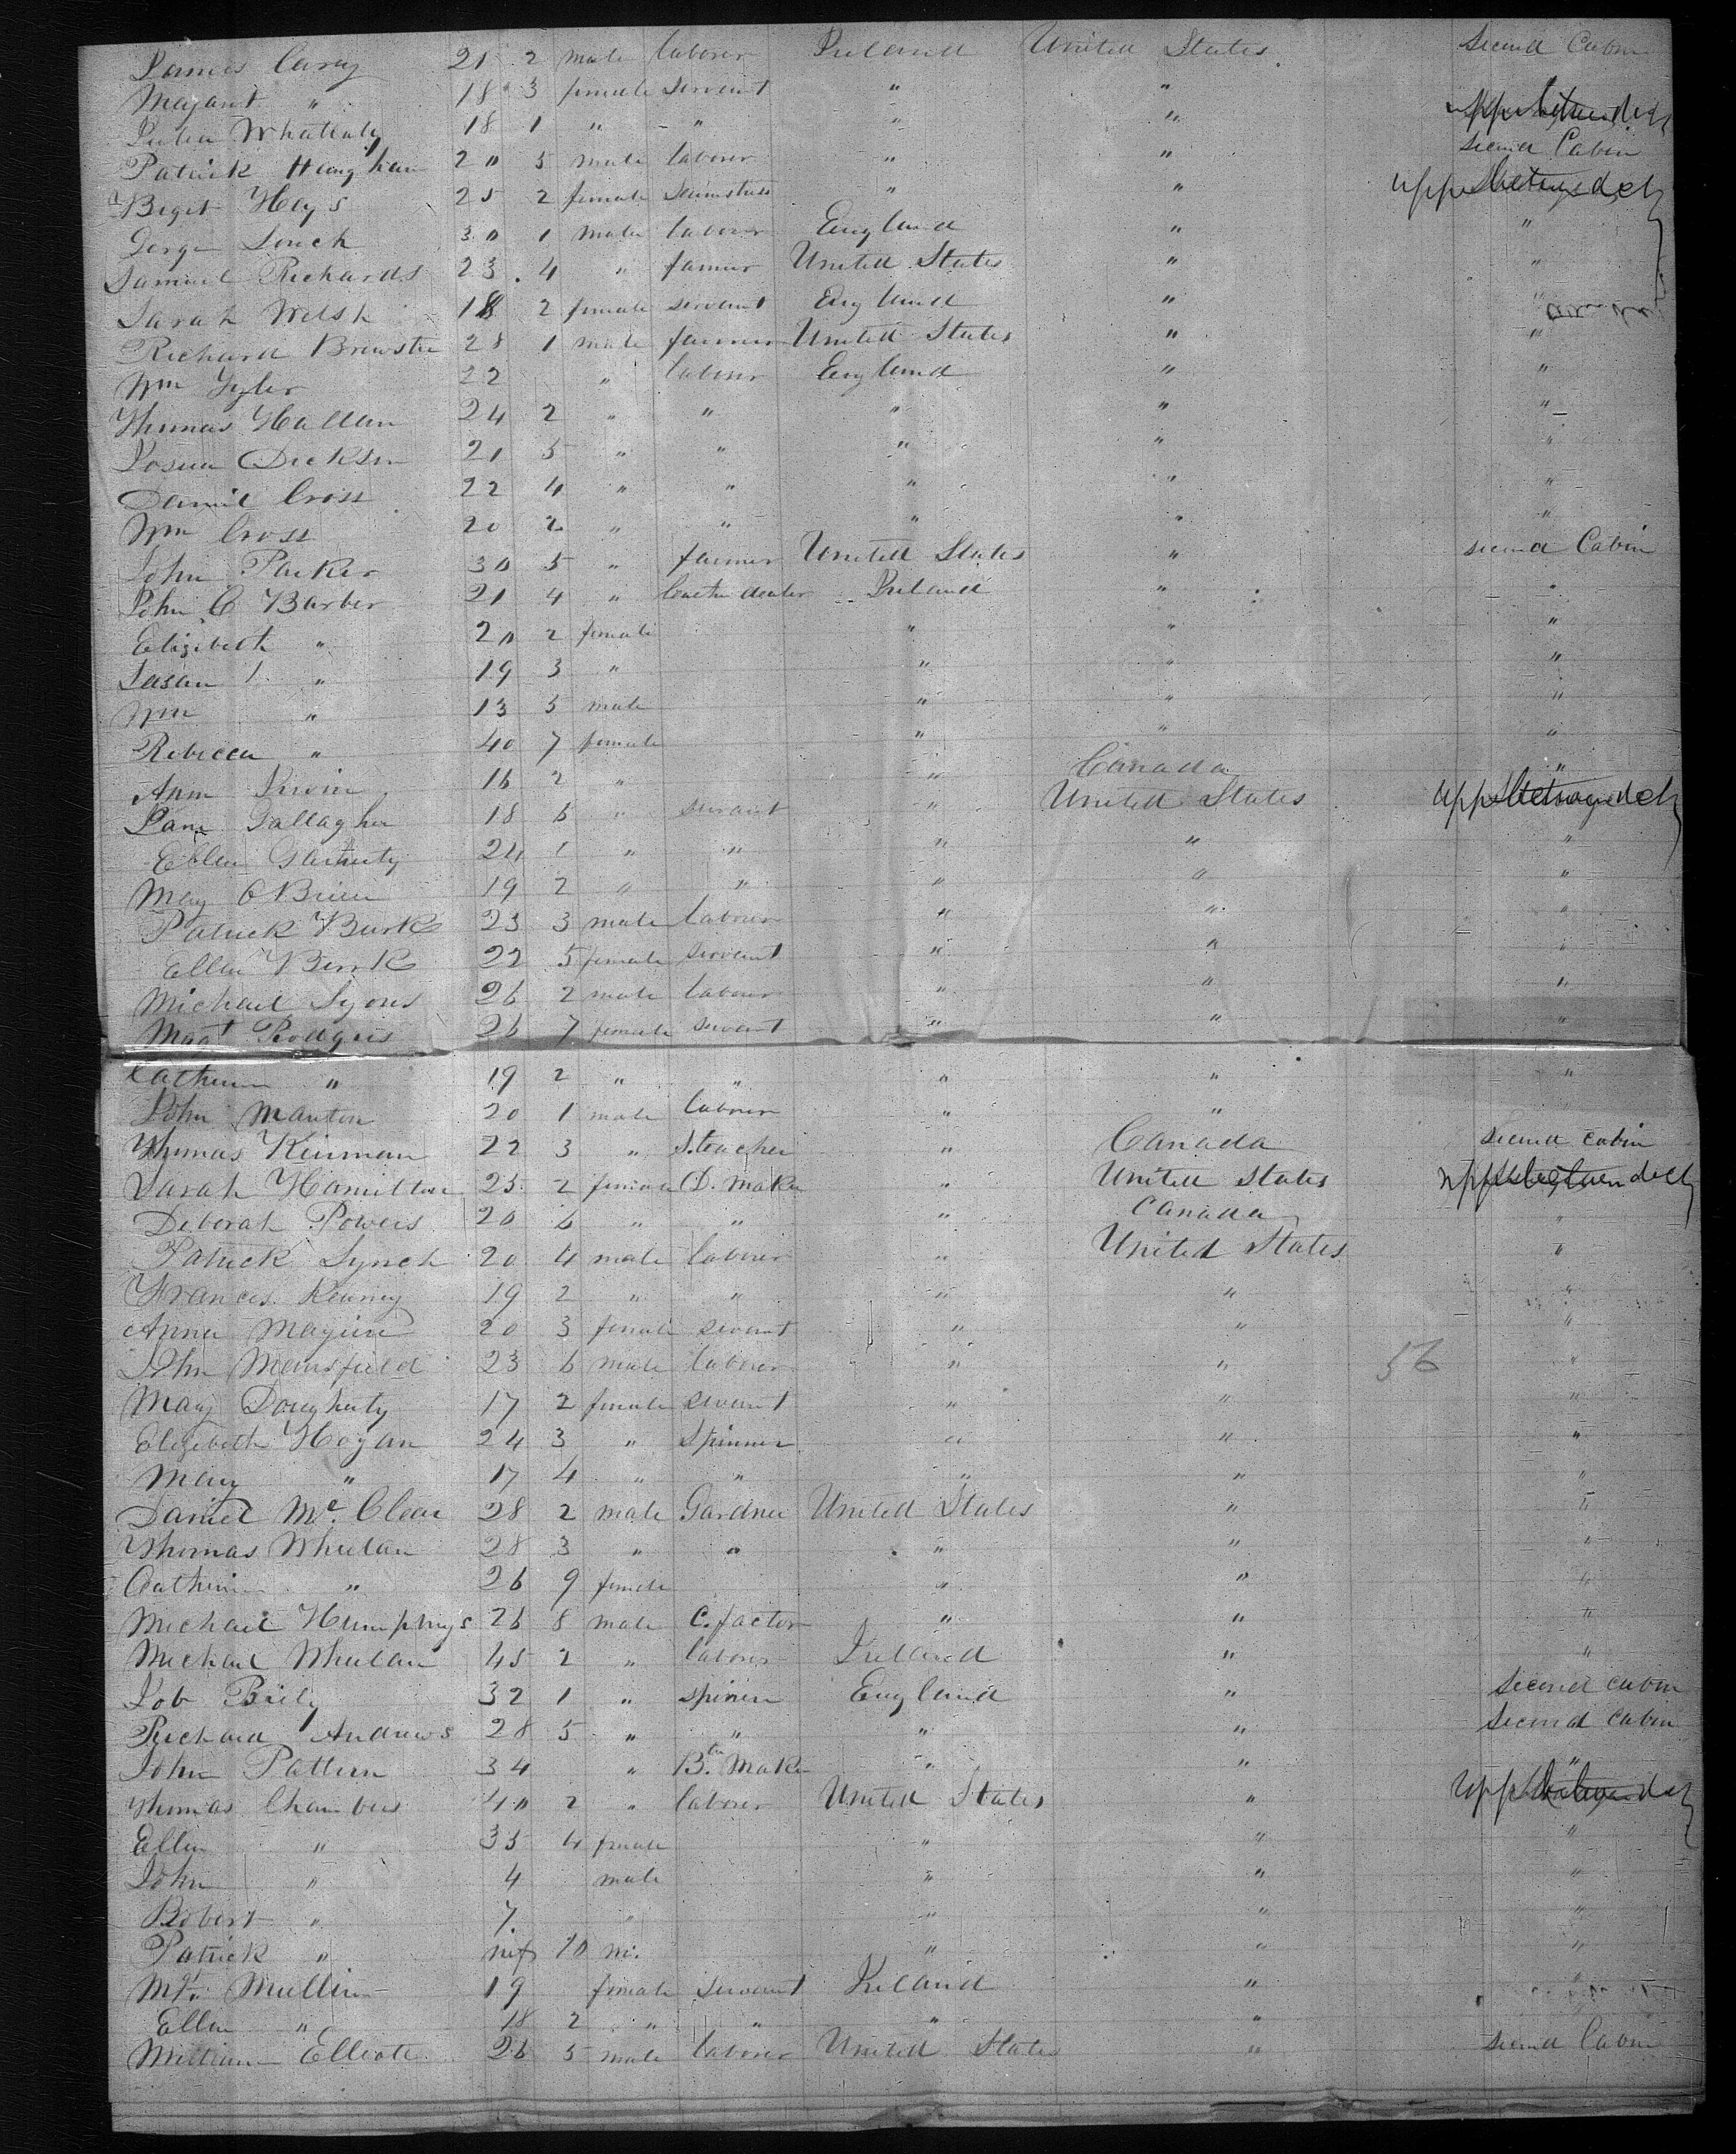 James Carey 21 2 male laborer Ireland United States Second Cabin
Margaret " 18 3 female servant " "
Julia Whatlaty 18 1 " " " " upper between deck
Patrick 20 5 male laborer " " second Cabin
Biget Hays 25 2 female Seamstress " " upper between deck
Gorge Louck 30 1 male laborer England " "
Samuel Richards 23 4 " farmer United States " "
Sarah Welsh 18 2 female servant England " "
Richard Brewster 28 1 male farmer United States " "
Wm Tyler 22 " laborer England " "
Thomas Hallan 24 2 " " " " "
Josua Dickson 21 5 " " " " "
Daniel Cross 22 4 " " " " "
Wm Cross 20 2 " " " " "
John Parker 30 5 " farmer United States " second Cabin
John C Barber 21 4 " Cattle dealer Ireland " "
Elizibeth " 20 2 female " " "
Susan J. " 19 3 " " " "
Wm " 13 5 male " " "
Rebecca " 40 7 female " " "
Ann Irwin 16 2 " " Canada "
Jane Gallagher 18 6 " servant " United States upper between deck
Ellen Garhuty 24 1 " " " " "
May O Brien 19 2 " " " " "
Patrick Burk 23 3 male laborer " " "
Ellen Burk 22 5 female servant " " "
Michael Lyons 26 2 male laborer " " "
Magt Rodgers 26 7 female servant " " "
Cathrin " 19 2 " " " " "
John Manton 20 1 male laborer " "
Thomas Kinman 22 3 " S. teacher " Canada second cabin
Sarah Hamilton 25 2 female D. maker " United States upper between deck
Deborah Powers 20 6 " " " Canada "
Patrick Lynch 20 4 male laborer " United States "
Frances Kenney 19 2 " " " " "
Anna Maguire 20 3 female servant " " "
John Mansfield 23 6 male laborer " " 56 "
Mary Dougherty 17 2 female servant " " "
Elizibeth Hogan 24 3 " Spinner " " "
Mary " 17 4 " " " " "
Daniel Mc Clear 28 2 male Gardner United States " "
Thomas Whelan 28 3 " " " " "
Cathrin " 26 9 female " " "
Michael Humphrys 26 8 male C. factor " " "
Michael Whelan 45 2 " laborer Ireland " "
Job Baily 32 1 " spiner England " Second cabin
Richard Andrews 28 5 " " " " Second cabin
John Patten 34 " Btn Maker " " "
Thomas Chambers 40 2 " laborer United States " upper between deck
Ellen " 35 4 female " " "
John " 4 male " " "
Robert " 7. " " " "
Patrick " inf 10 m. " " "
Mt. Mullin 19 female servant Ireland " "
Ellen " 18 2 " " " "
William Elliote 26 5 male laborer United States " second Cabin